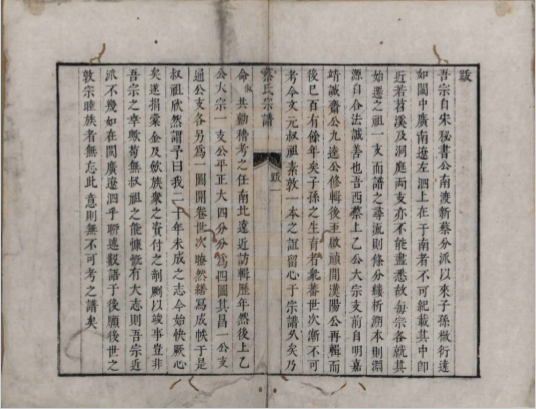 跋
吾宗自宋秘書公南渡新蔡分派以來子孫椒衍遠
如閩中廣南遼左泗上在于南者不可紀載其中卽
近若苕溪及洞庭兩支亦不能盡悉故每宗各就其
始遷之祖一支而譜之尋流則條分縷析溯本則淵
源自合法誠善也吾西蔡上乙公大宗支前自明嘉
靖誠齋公九逵公修輯後至啟禎間漢陽公再輯而
後已百有餘年矣子孫之生育者旣蕃世次漸不可
考今文元叔祖素敦一本之誼留心于宗譜久矣乃
蔡氏宗譜
跋
一
命 共勷稽考之任南北遠近訪輯歷年然後上乙
公大宗一支公平正大四分分爲四圖其昌一公支
通公支各另爲一圖開卷世次瞭然繕寫成帙于是
叔祖欣然謂予曰我二十年未成之志今始快厥心
矣遂捐橐金及歛族衆之資付之剞劂以竣事豈非
吾宗之幸歟苟無叔祖之能慷慨有大志則吾宗近
派不幾如在閩廣遼泗乎聊述數語于後願後世之
敦宗睦族者無忘此意則無不可考之譜矣